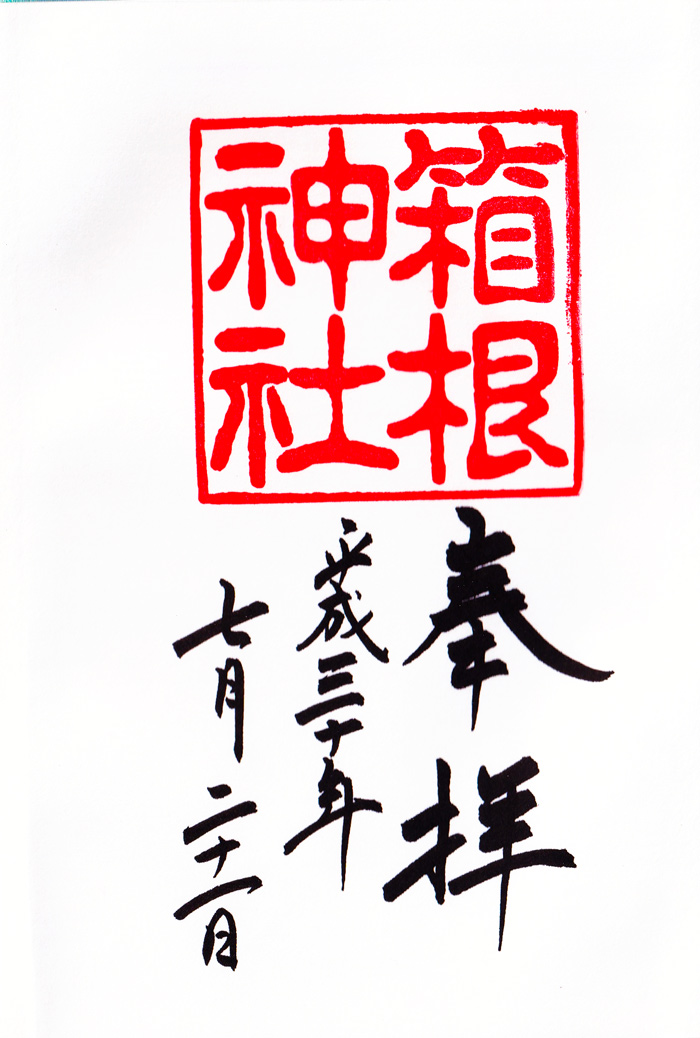 箱根
神社
奉拝
平成三十年
七月二十一日